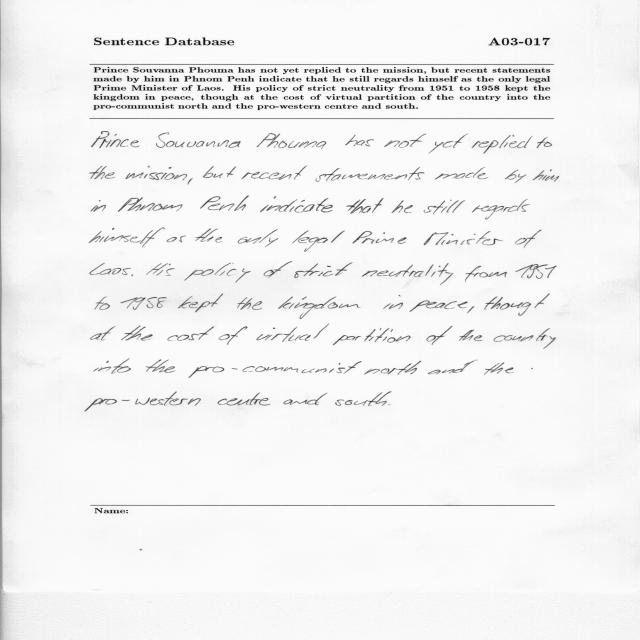 Sentence Database A03-017
Prince Souvanna Phouma has not yet replied to the mission, but recent statements
made by him in Phnom Penh indicate that he still regards himself as the only legal
Prime Minister of Laos. His policy of strict neutrality from 1951 to 1958 kept the
kingdom in peace, though at the cost of virtual partition of the country into the
pro-communist north and the pro-western centre and south.
Prince Souvanna Phouma has not yet replied to
the mission, but recent stawements made by him
in Phnom Penh indicate that he still regards
himself as the only legal Prime Minister of
Laos. His policy of strict neutrality from 1951
to 1958 kept the kingdom in peace, though
at the cost of virtual partition of the country
into the pro-communist north and the
pro-western centre and south.
Name: